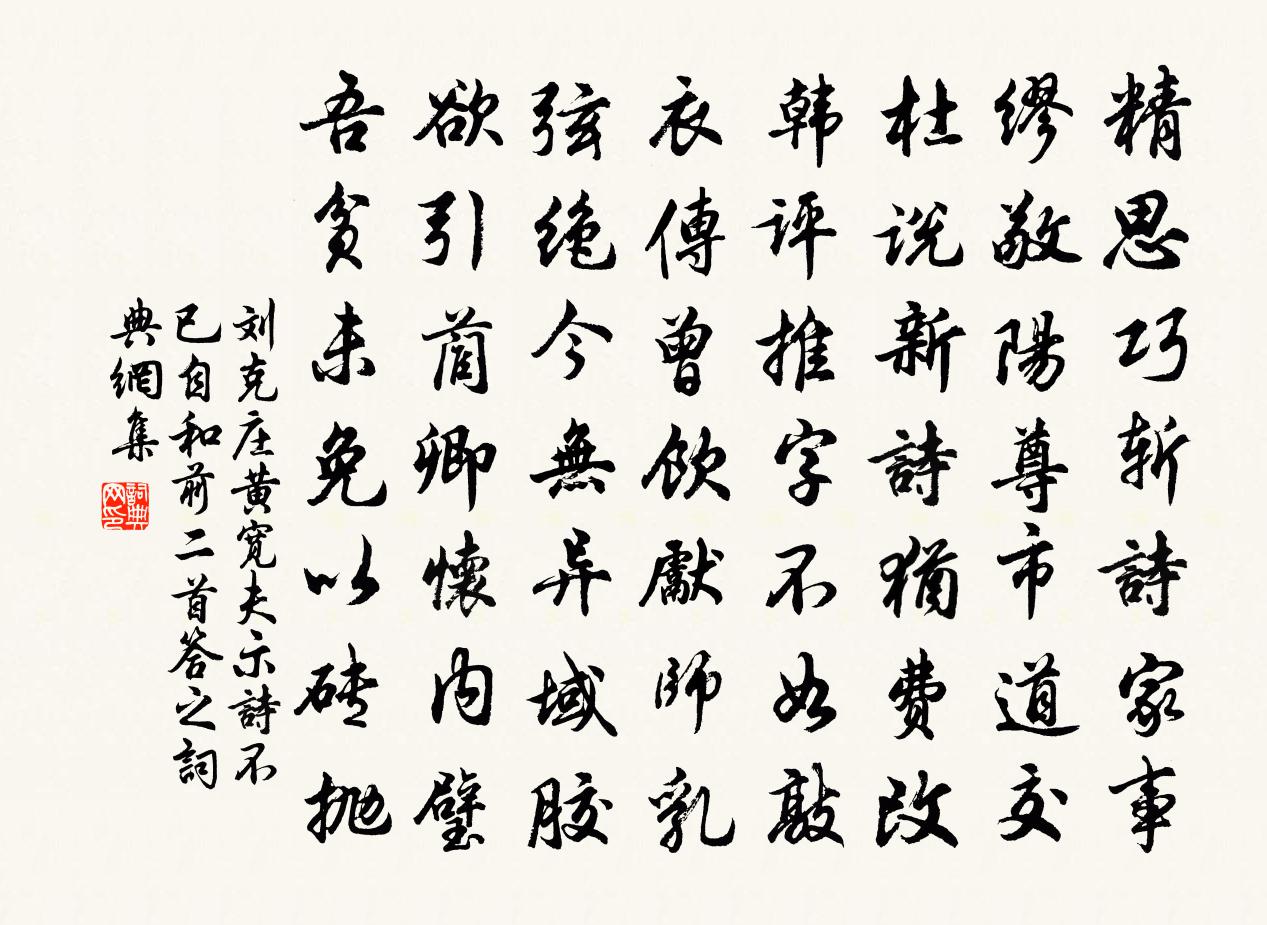 精思巧斩詩家事
缪敬陽尊市道交
杜説新詩猶費改
韩評推字不如敲
衣傳曾飲獻師乳
弦绝今無异域胶
欲引蔺卿懷内璧
吾貧未免以砖抛
刘克庄黄寬夫示詩不
已自和前二首答之詞
典網集
詞典
网印